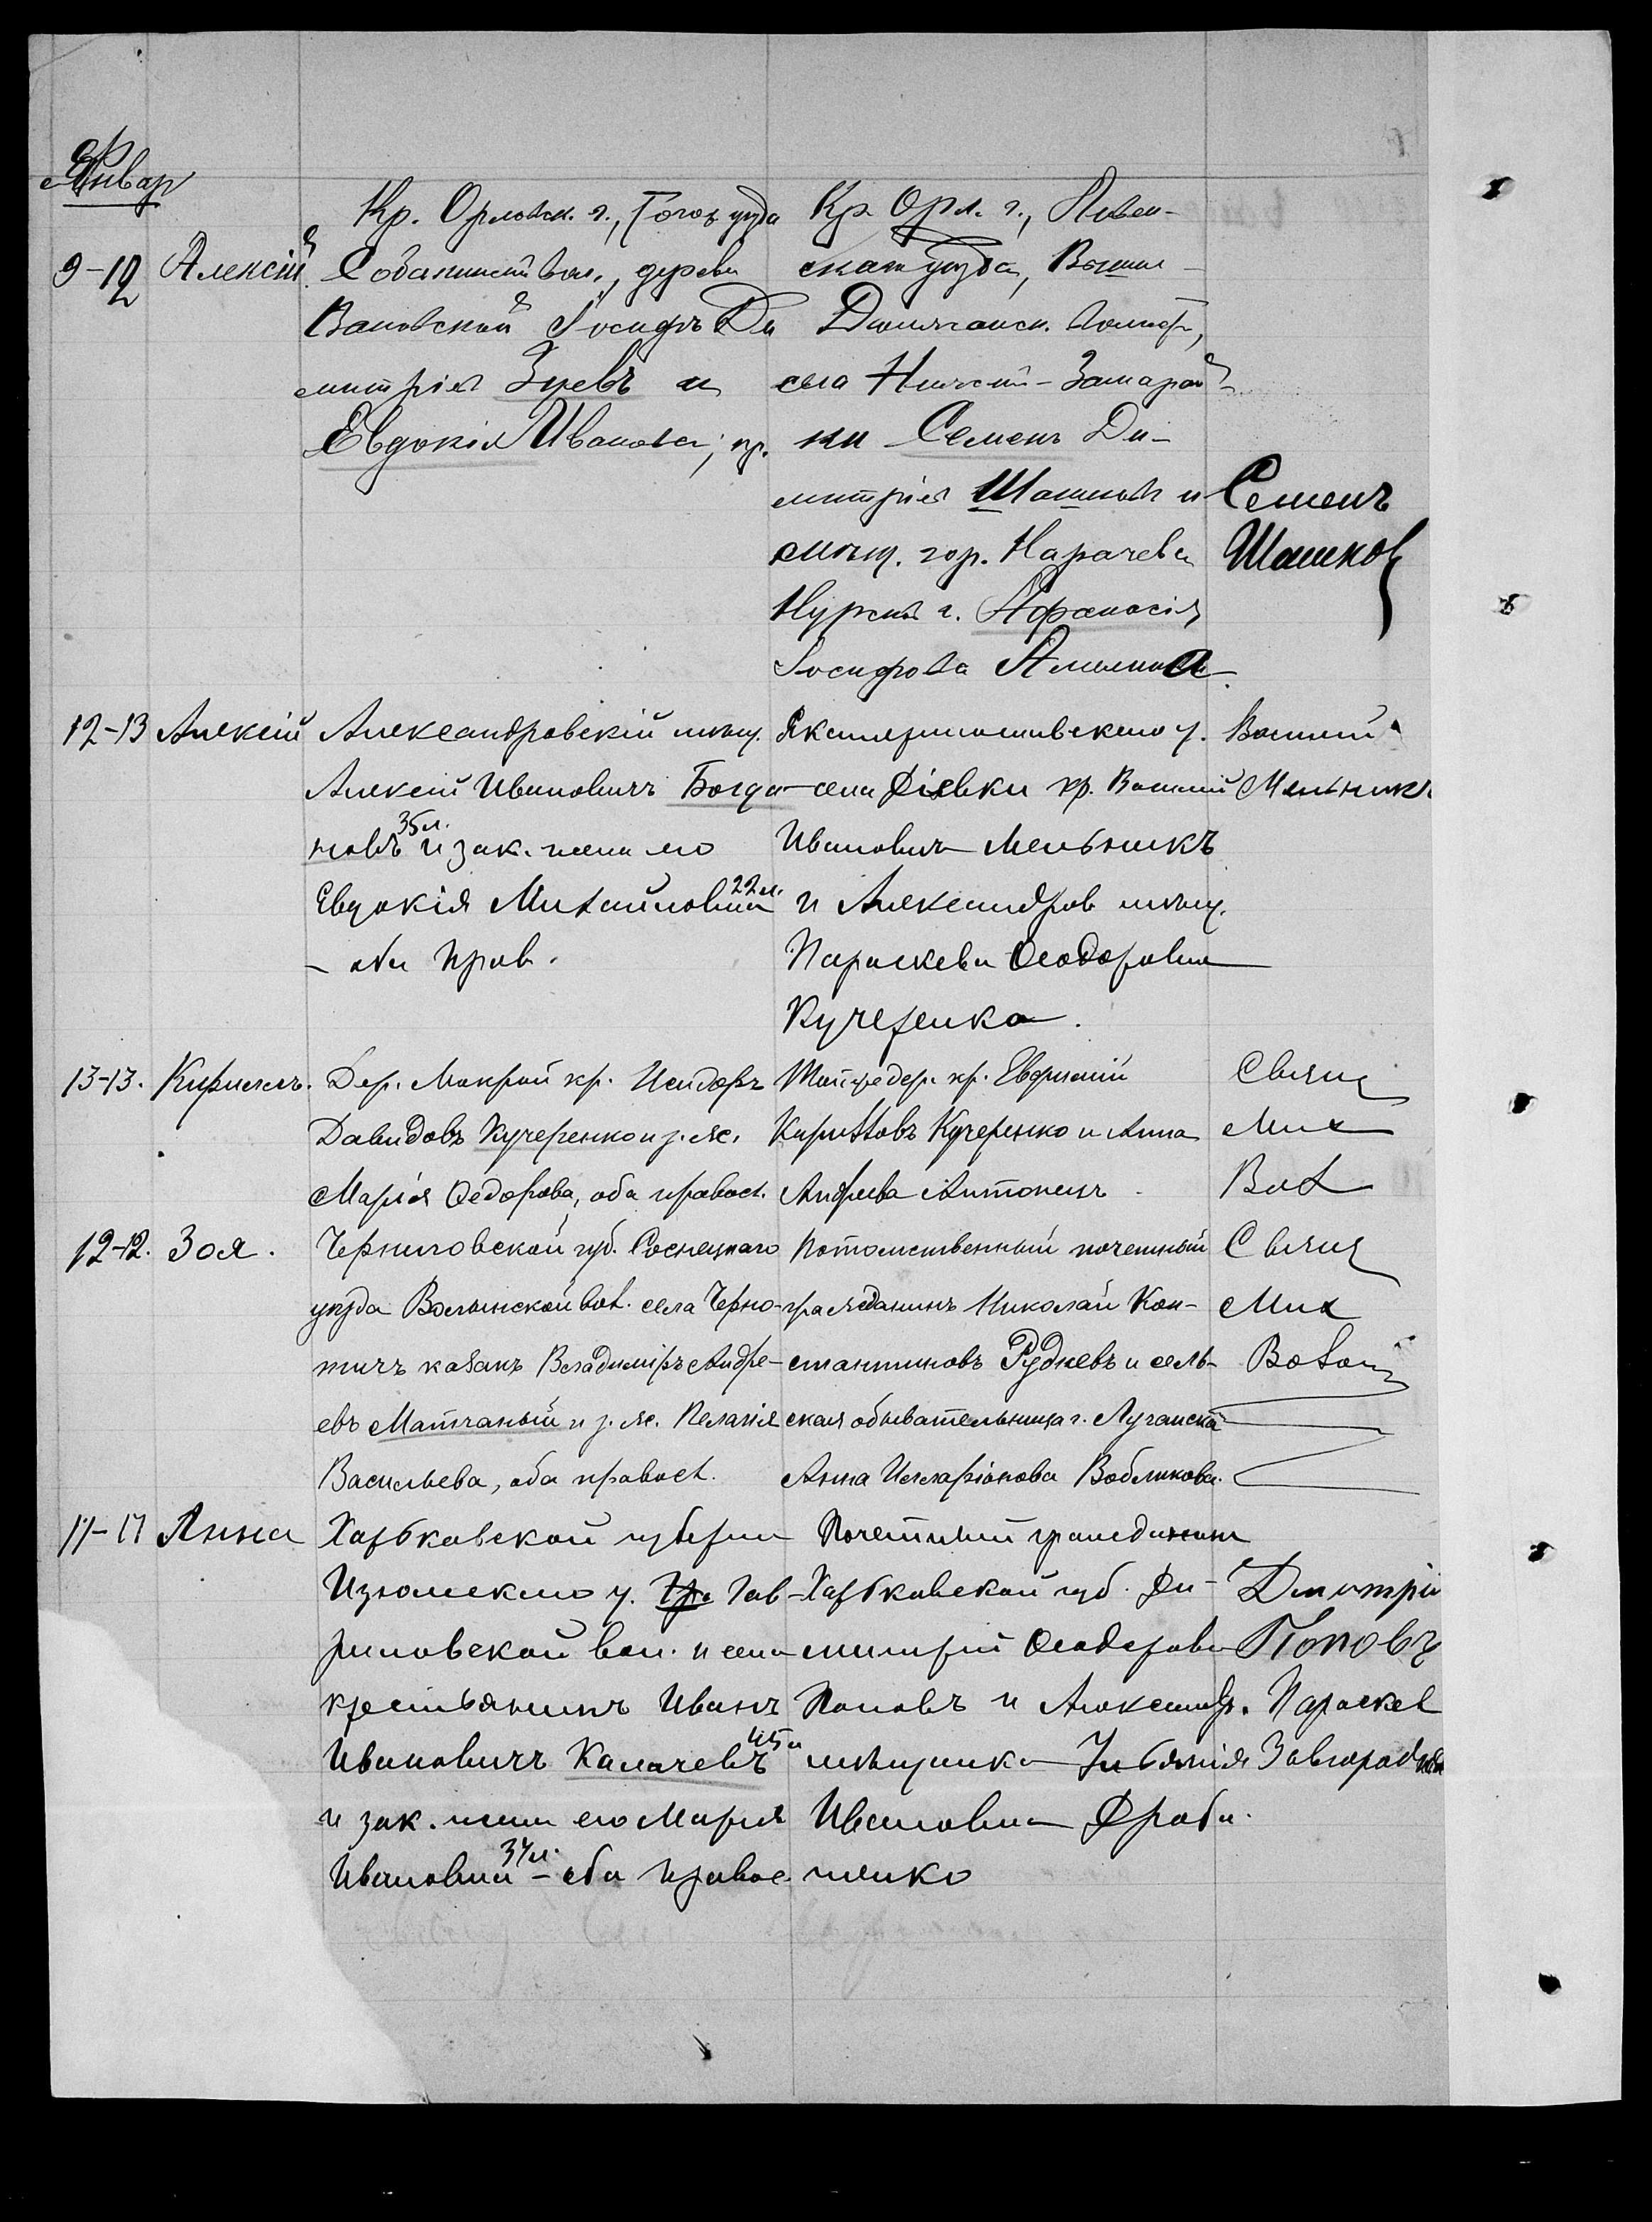 Январ
9-12 Алексій
Кр. Орловск. г., уѣзда
вол., деревн
Іосифъ Ди
митріевъ Зуевъ и
Евдокія Иванова; пр.
Кр. Орл. г., Ливен-
скаго уѣзда,
села
ки Семенъ Ди-
митріевъ Шашковъ и
мѣщ. гор. Карачева
Курской г. Афанасія
Іосифова
Семенъ
Шашков
12-13 Алексій
Александровскій мѣщ.
Алексій Ивановичъ Богда-
новъ 35 л. и зак. жена его
Евдокія Михайловна 22 л.
- оба прав.
Екатеринославскаго у.
села Діявки кр. Василій
Ивановичъ Мельникъ
и Александров. мѣщ.
Параскева Ѳеодоровна
Кучеренко.
Василій
Мельникъ
13-13. Кириллъ.
Дер. Мокрой кр. Исидоръ
Давидовъ Кучеренко и з. ж.
Марія Ѳедорова, оба правосл.
Той же дер. кр. Евфимій
Кирилловъ Кучеренко и Анна
Андреева Антонецъ.
Свящ
Мих
Вол
12-12. Зоя.
Черниговской губ. Сосницкаго
уѣзда Волынской вол. села Черно-
тичъ казакъ Владиміръ Андре-
евъ Матчаный и з. ж. Пелагія
Васильева, оба правосл.
Потомственный почетный
гражданинъ Николай Кон-
стантиновъ Рудневъ и сель-
ская обывательница г. Луганска
Анна Илларіонова Вобликова.
Свящ
Мих
Волош
11-17 Анна
Харьковской губерніи
Изюмскаго у. Гав-
риловской вол. и села
крестьянинъ Иванъ
Ивановичъ Калачевъ 45 л
и зак. жена его Марія
Ивановна 34 л. - оба правос.
Почетный гражданинъ
Харьковской губ. Ди-
митрій Ѳеодоровъ
Поповъ и Александр.
мѣщанка Ульянія
Ивановна Дроба-
тенко
Дмитрій
Поповъ
Параскев